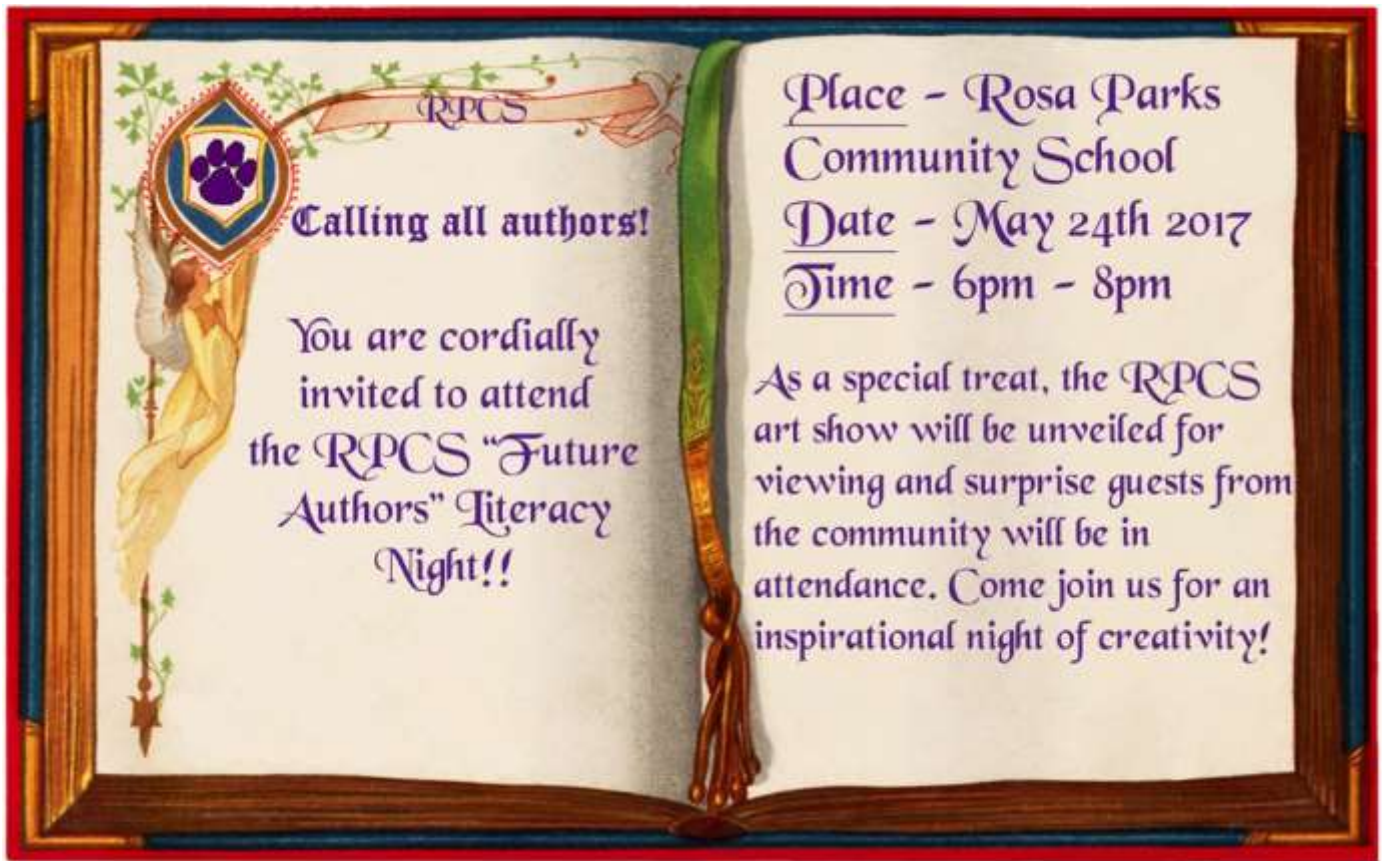 RPCS
Calling all authors!
You are cordially
invited to attend
the RPCS “Future
Authors” Literacy
Night!!
Place - Rosa Parks
Community School
Date - May 24th 2017
Time - 6pm - 8pm
As a special treat, the RPCS
art show will be unveiled for
viewing and surprise guests from
the community will be in
attendance. Come join us for an
inspirational night of creativity!